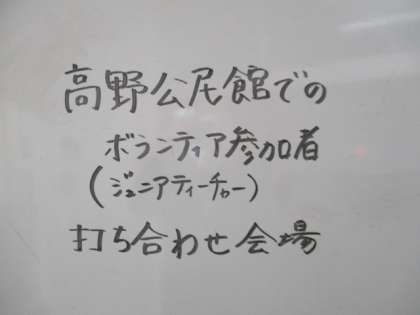 高野公民館での
ボランティア参加者
(ジュニアティーチャー)
打ち合わせ会場